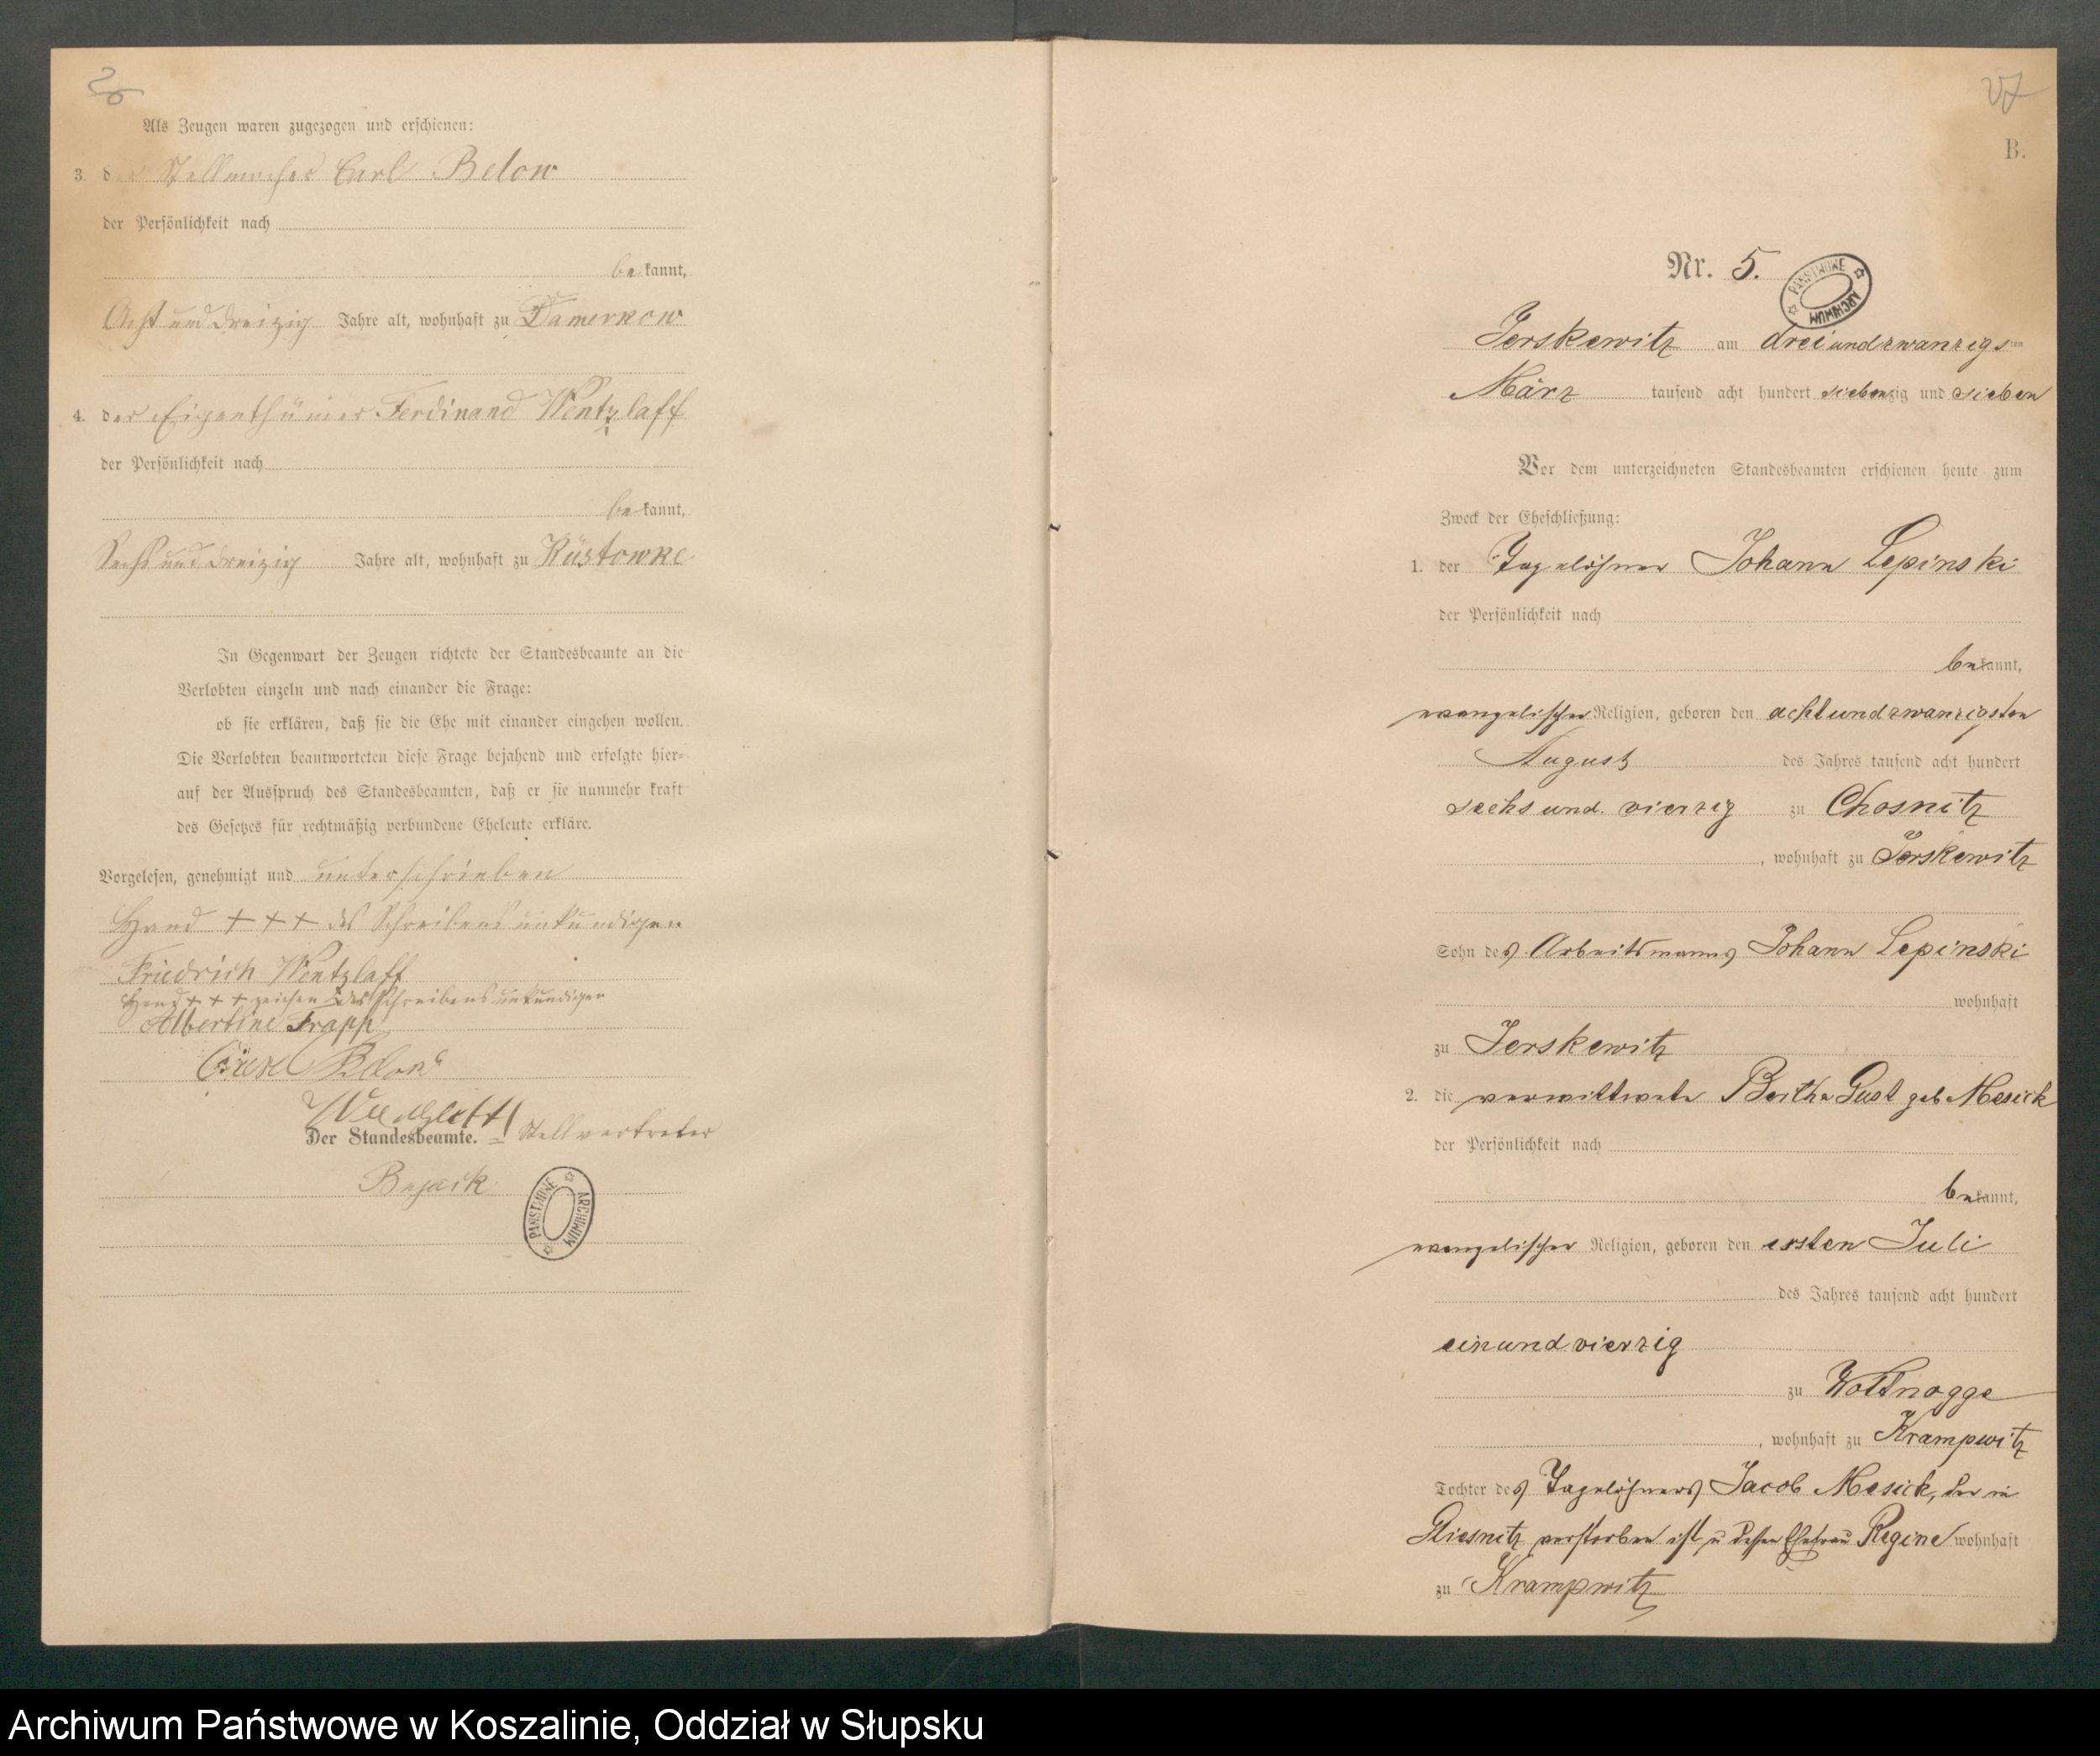 26
Als Zeugen waren zugezogen und erschienen:
3. der Stellmacher Carl Below
der Persönlichkeit nach
be kannt,
Acht und dreizig Jahre alt, wohnhaft zu Damerkow
4. der Eigenthümer Ferdinand Wentzlaff
der Persönlichkeit nach
be kannt,
Sechs und dreizig Jahre alt, wohnhaft zu Küstowke
In Gegenwart der Zeugen richtete der Standesbeamte an die
Verlobten einzeln und nach einander die Frage:
ob sie erklären, daß sie die Ehe mit einander eingehen wollen.
Die Verlobten beantworteten diese Frage bejahend und erfolgte hier-
auf der Ausspruch des Standesbeamten, daß er sie nunmehr kraft
des Gesetzes für rechtmäßig verbundene Eheleute erkläre.
Vorgelesen, genehmigt und unterschrieben
Hand + + + des Schreibens unkundigen
Friedrich Wentzlaff
Hand + + + zeichen des Schreibens unkundigen
Albertine Trapp
Below
Der Standesbeamte. Stellvertreter
PAŃSTWOWE ARCHIWUM
27
B.
Nr. 5.
PAŃSTWOWE ARCHIWUM
Jerskewitz am dreiundzwanzigsten
März tausend acht hundert siebenzig und sieben
Vor dem unterzeichneten Standesbeamten erschienen heute zum
Zweck der Eheschließung:
1. der Tagelöhner Johann Lepinski
der Persönlichkeit nach
bekannt,
evangelischer Religion, geboren den achtundzwanzigsten
August des Jahres tausend acht hundert
sechs und vierzig zu Chosnitz
, wohnhaft zu Jerskewitz
Sohn des Arbeitsmanns Johann Lepinski
wohnhaft
zu Jerskewitz
2. die verwittwete Bertha Gust geb Mesick
der Persönlichkeit nach
bekannt,
evangelischer Religion, geboren den ersten Juli
des Jahres tausend acht hundert
einundvierzig
zu Wottnogge
, wohnhaft zu Krampwitz
Tochter des Tagelöhners Jacob Mesick, der in
Gliesnitz verstorben ist u dessen Ehefrau Regine wohnhaft
zu Krampwitz
Archiwum Państwowe w Koszalinie, Oddział w Słupsku